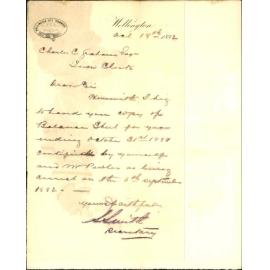 Wellington
Oct 18th 1882
Charles C. Graham Esq
Town Clerk
Dear Sir
Herewith I beg
to hand you copy of
Balance Sheet for year
ending October 31st
certified by yourself
and Mr as being
on the 6th September
1882
Yours faithfully
Smith
Secretary